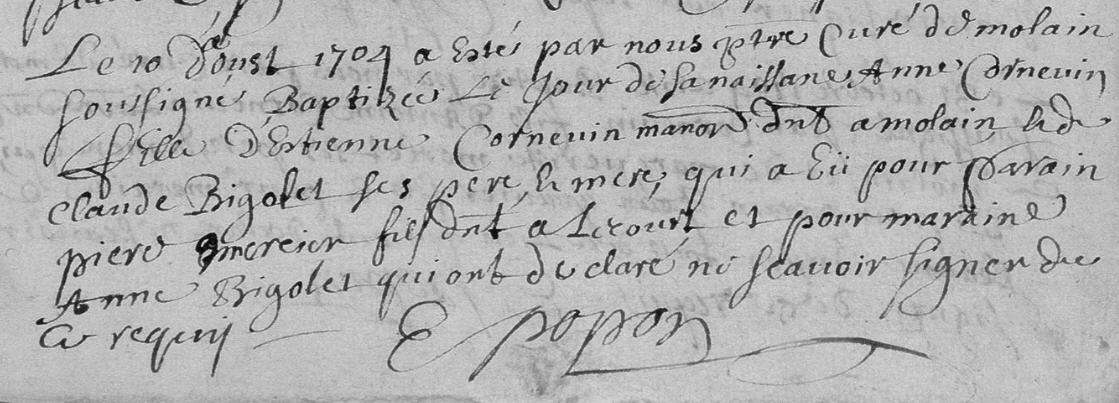 Le 10 d'oust 1704 a esté par nous ptre Curé de molain
soussigné Baptizée Le Jour de sa naissance Anne Cornevin
fille d'Estienne Cornevin manovr dnt a molain, & de
Claude Bigolet ses pere, & mere, qui a Eü pour parain
piere mercier fils dnt a Lecourt et pour maraine
Anne Bigolet qui ont declaré ne scavoir signer de
Ce requis E popon